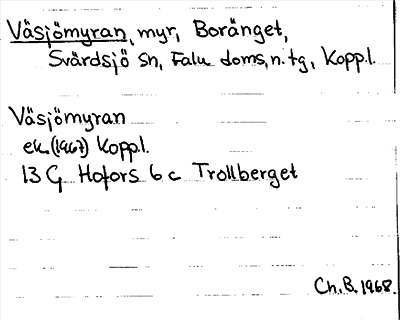 Väsjömyran, myr, Boränget,
Svärdsjö sn, Falu doms. n. tg, Kopp.l.
Väsjömyran
ek. (1967) Kopp.l.
13 G Hofors 6 c Trollberget
Ch. B. 1968.